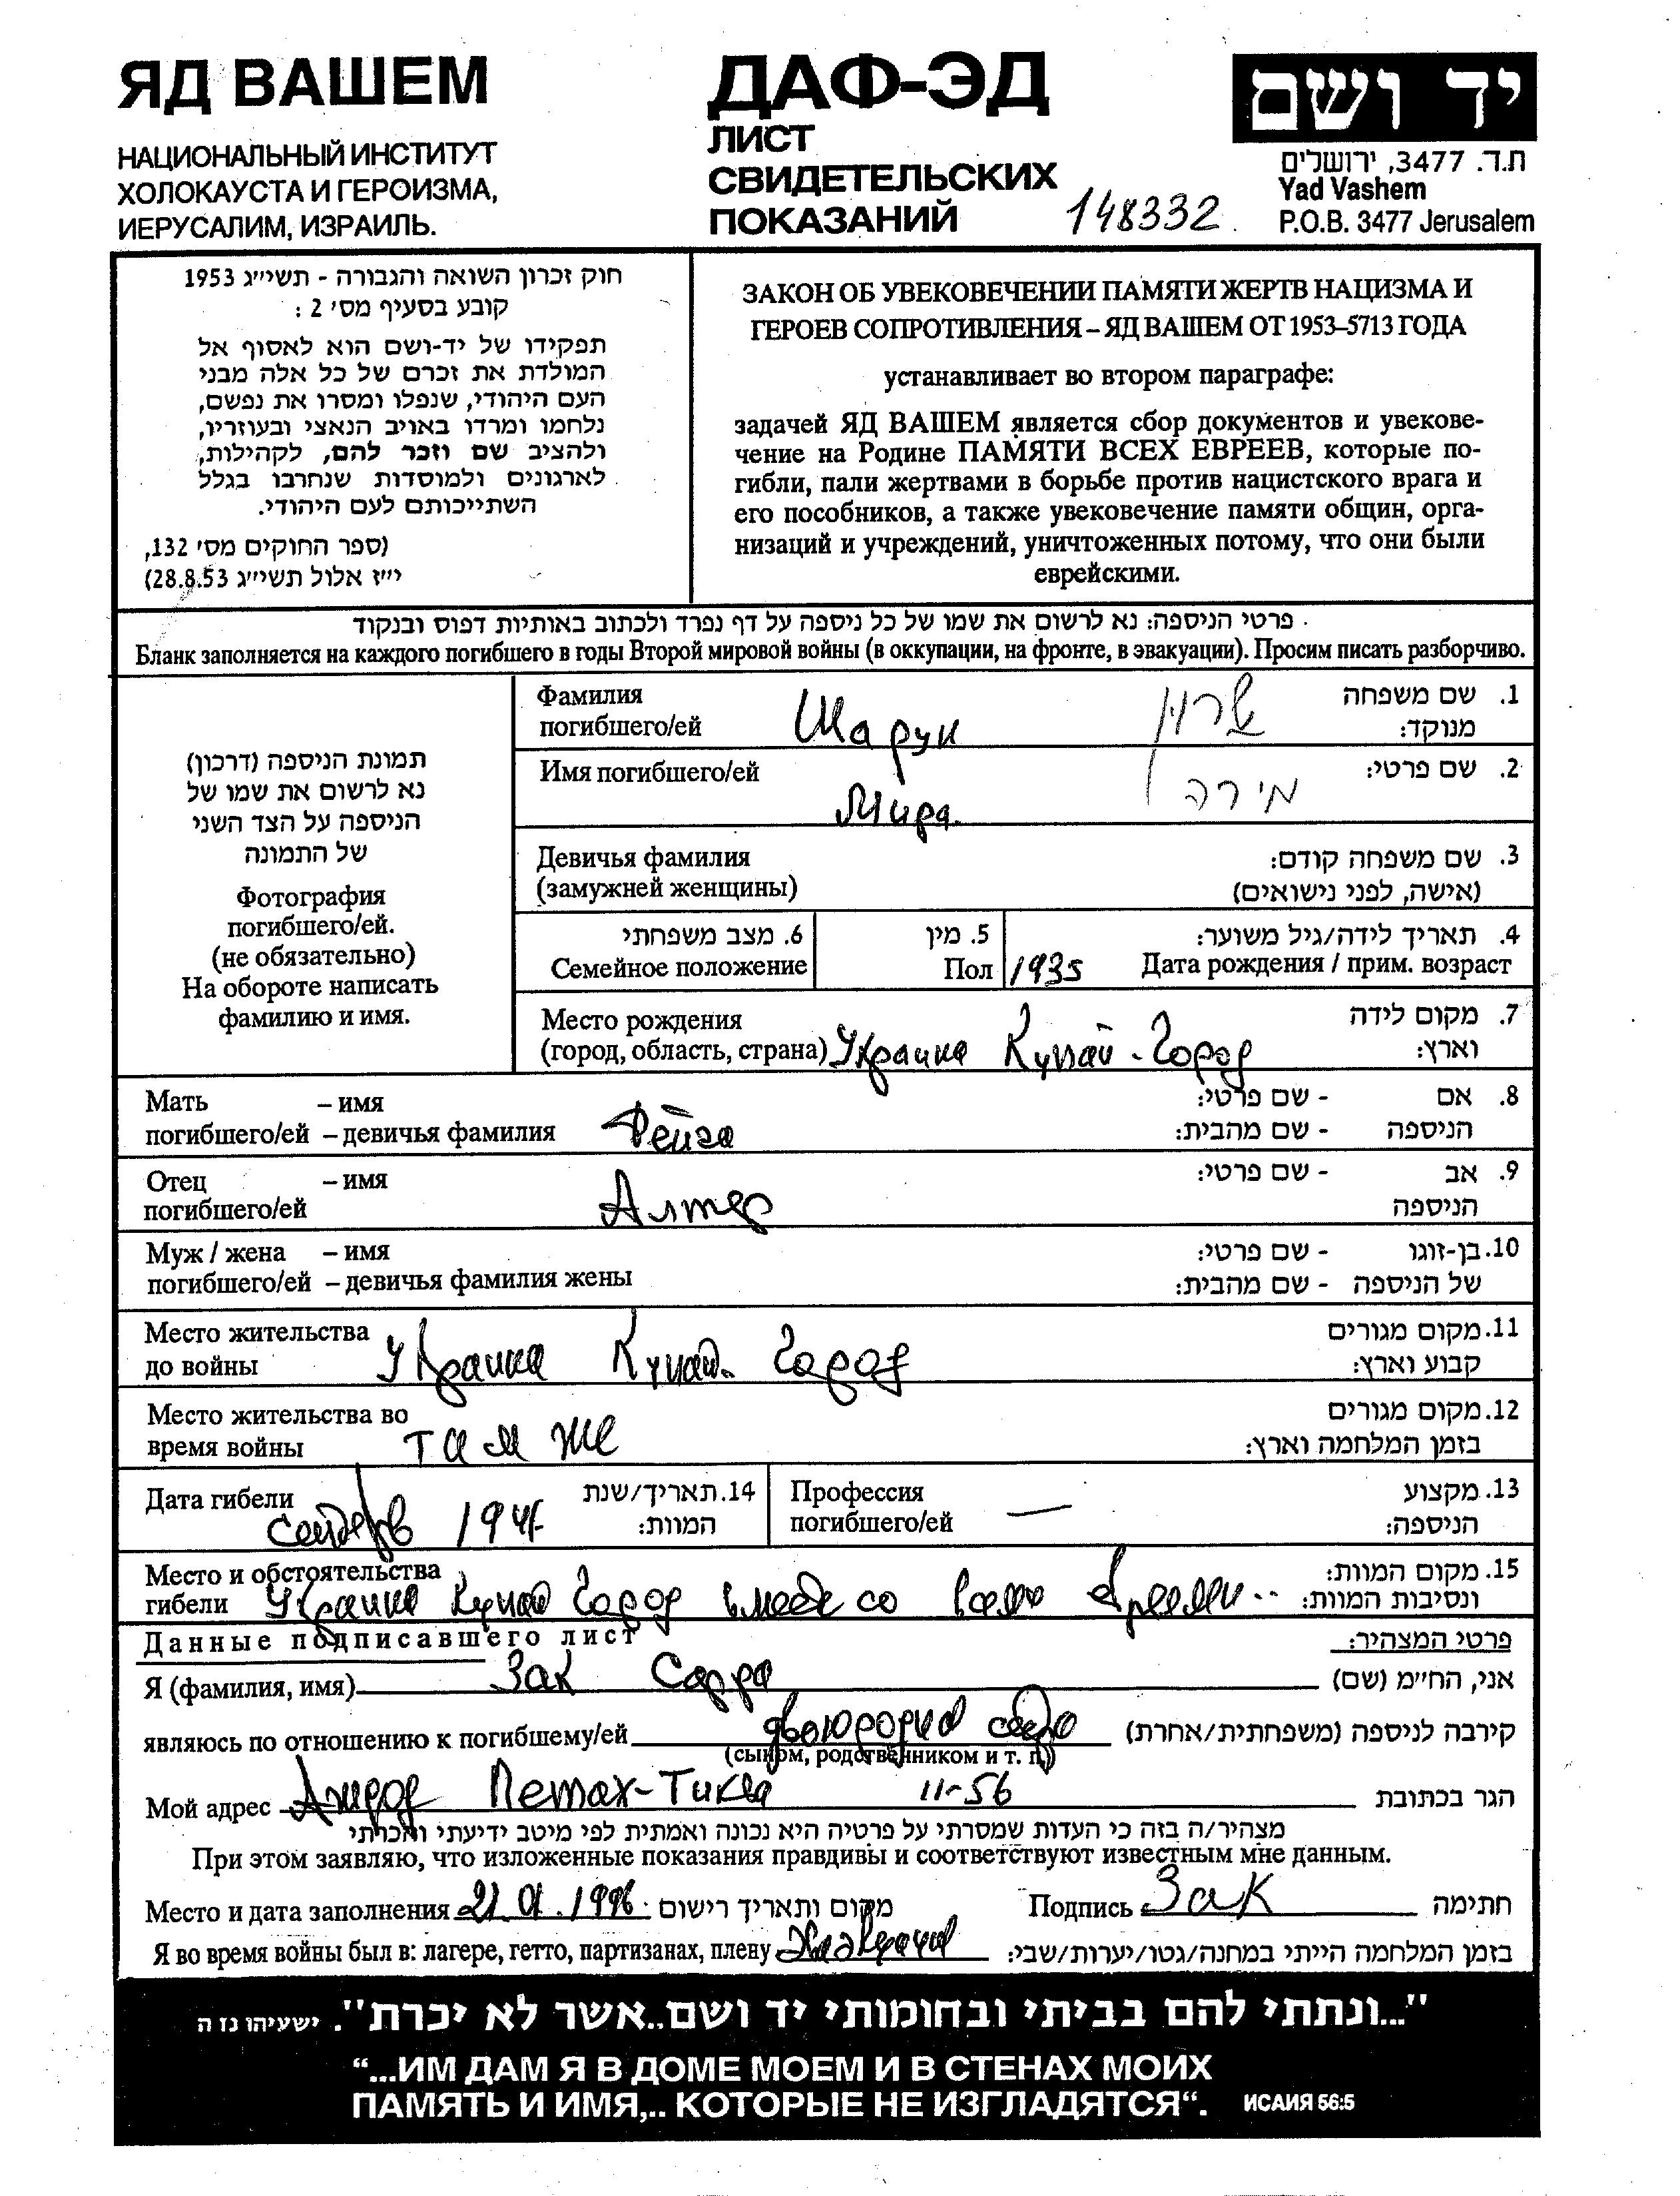 ЯД ВАШЕМ
НАЦИОНАЛЬНЫЙ ИНСТИТУТ
ХОЛОКАУСТА И ГЕРОИЗМА,
ИЕРУСАЛИМ, ИЗРАИЛЬ.
ДАФ-ЭД
ЛИСТ
СВИДЕТЕЛЬСКИХ
ПОКАЗАНИЙ
148332
יד ושם
ת.ד. 3477, ירושלים
Yad Vashem
P.O.B. 3477 Jerusalem
חוק זכרון השואה והגבורה - תשי״ג 1953
קובע בסעיף מס׳ 2 :
תפקידו של יד-ושם הוא לאסוף אל
המולדת את זכרם של כל אלה מבני
העם היהודי, שנפלו ומסרו את נפשם,
נלחמו ומרדו באויב הנאצי ובעוזריו,
ולהציב שם וזכר להם, לקהילות,
לארגונים ולמוסדות שנחרבו בגלל
השתייכותם לעם היהודי.
(ספר החוקים מס׳ 132,
י״ז אלול תשי״ג 28.8.53)
ЗАКОН ОБ УВЕКОВЕЧЕНИИ ПАМЯТИ ЖЕРТВ НАЦИЗМА И
ГЕРОЕВ СОПРОТИВЛЕНИЯ – ЯД ВАШЕМ ОТ 1953–5713 ГОДА
устанавливает во втором параграфе:
задачей ЯД ВАШЕМ является сбор документов и увекове-
чение на Родине ПАМЯТИ ВСЕХ ЕВРЕЕВ, которые по-
гибли, пали жертвами в борьбе против нацистского врага и
его пособников, а также увековечение памяти общин, орга-
низаций и учреждений, уничтоженных потому, что они были
еврейскими.
פרטי הניספה: נא לרשום את שמו של כל ניספה על דף נפרד ולכתוב באותיות דפוס ובנקוד
Бланк заполняется на каждого погибшего в годы Второй мировой войны (в оккупации, на фронте, в эвакуации). Просим писать разборчиво.
תמונת הניספה (דרכון)
נא לרשום את שמו של
הניספה על הצד השני
של התמונה
Фотография
погибшего/ей.
(не обязательно)
На обороте написать
фамилию и имя.
Фамилия погибшего/ей Шарун שרון 1. שם משפחה מנוקד:
Имя погибшего/ей Мира. מירה 2. שם פרטי:
Девичья фамилия 3. שם משפחה קודם:
(замужней женщины) (אישה, לפני נישואים)
6. מצב משפחתי 5. מין 4. תאריך לידה/גיל משוער:
Семейное положение Пол 1935 Дата рождения / прим. возраст
Место рождения 7. מקום לידה
(город, область, страна) Украина Купай-Город וארץ:
Мать – имя 8. אם - שם פרטי:
погибшего/ей – девичья фамилия Фейга הניספה - שם מהבית:
Отец – имя 9. אב - שם פרטי:
погибшего/ей Алтер הניספה
Муж / жена – имя 10. בן-זוגו - שם פרטי:
погибшего/ей – девичья фамилия жены של הניספה - שם מהבית:
Место жительства 11. מקום מגורים
до войны Украина Купай-Город קבוע וארץ:
Место жительства во 12. מקום מגורים
время войны там же בזמן המלחמה וארץ:
Дата гибели 14. תאריך/שנת Профессия 13. מקצוע
1941 המוות: погибшего/ей — הניספה:
Место и обстоятельства 15. מקום המוות:
гибели Украина Купай Город вместе со всеми ונסיבות המוות:
Данные подписавшего лист פרטי המצהיר:
Я (фамилия, имя) Зак Сарра אני, החי״מ (שם)
являюсь по отношению к погибшему/ей двоюродная קירבה לניספה (משפחתית/אחרת)
(сыном, родственником и т. п.)
Мой адрес Петах-Тиква 11-56 הגר בכתובת
מצהיר/ה בזה כי העדות שמסרתי על פרטיה היא נכונה ואמתית לפי מיטב ידיעתי והכרתי
При этом заявляю, что изложенные показания правдивы и соответствуют известным мне данным.
Место и дата заполнения 21.01.1996 מקום ותאריך רישום Подпись Зак חתימה
Я во время войны был в: лагере, гетто, партизанах, плену בזמן המלחמה הייתי במחנה/גטו/יערות/שבי:
"...ונתתי להם בביתי ובחומותי יד ושם..אשר לא יכרת". ישעיהו נז ה
“...ИМ ДАМ Я В ДОМЕ МОЕМ И В СТЕНАХ МОИХ
ПАМЯТЬ И ИМЯ,.. КОТОРЫЕ НЕ ИЗГЛАДЯТСЯ“. ИСАИЯ 56:5